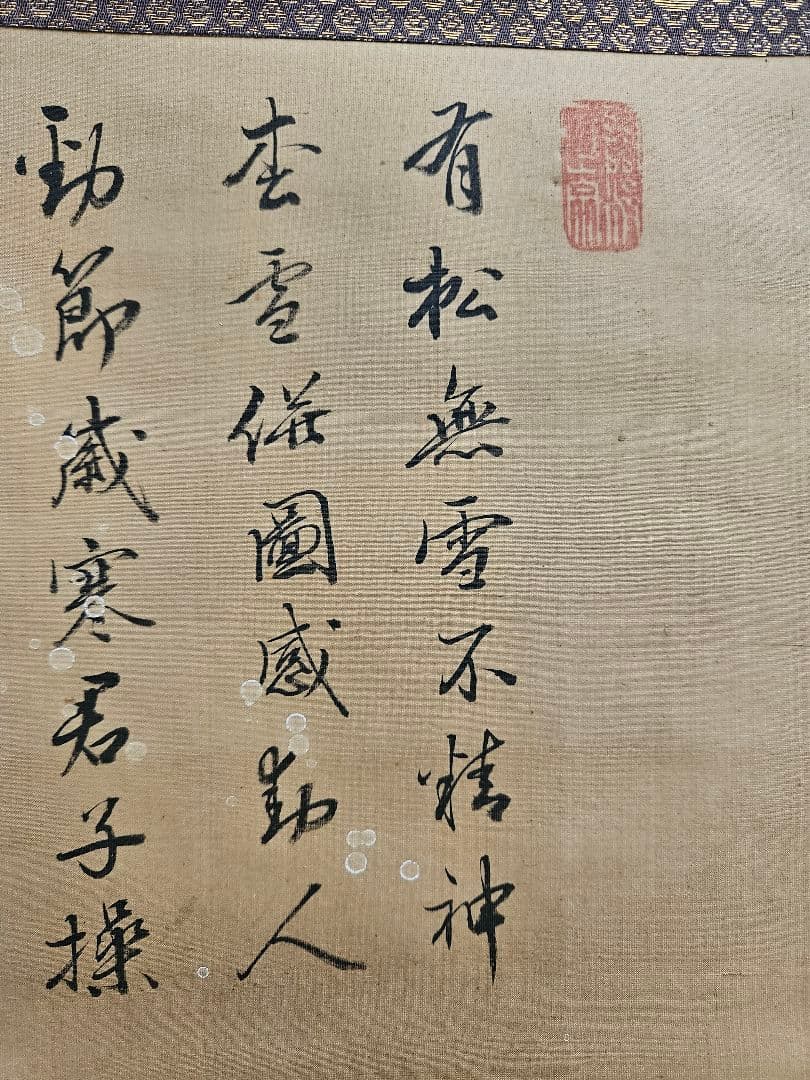 有松無雪不精神
枩雪併圖感動人
勁節歳寒君子操